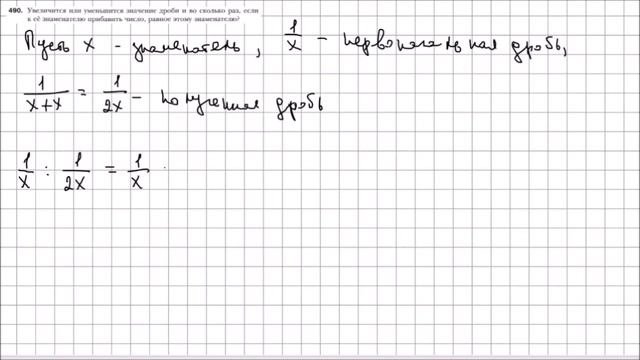 490. Увеличится или уменьшится значение дроби и во сколько раз, если
к её знаменателю прибавить число, равное этому знаменателю?
Пусть x - знаменатель, 1/x - первоначальная дробь,
1/(x+x) = 1/2x - полученная дробь
1/x : 1/2x = 1/x ·